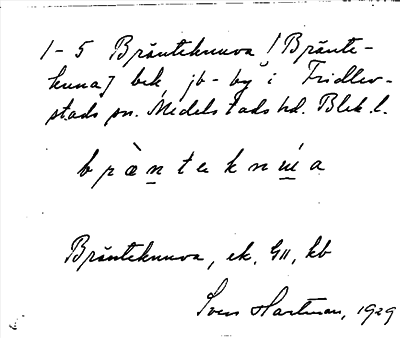 1-5 Bränteknuva [Bränte-
knuva] bek. jb-by i Fridlev-
stads sn. Medelstads hd. Blek. l.
b r ä n t e k n u a
Bränteknuva, ek, GII, kb
Sven Hartman, 1929